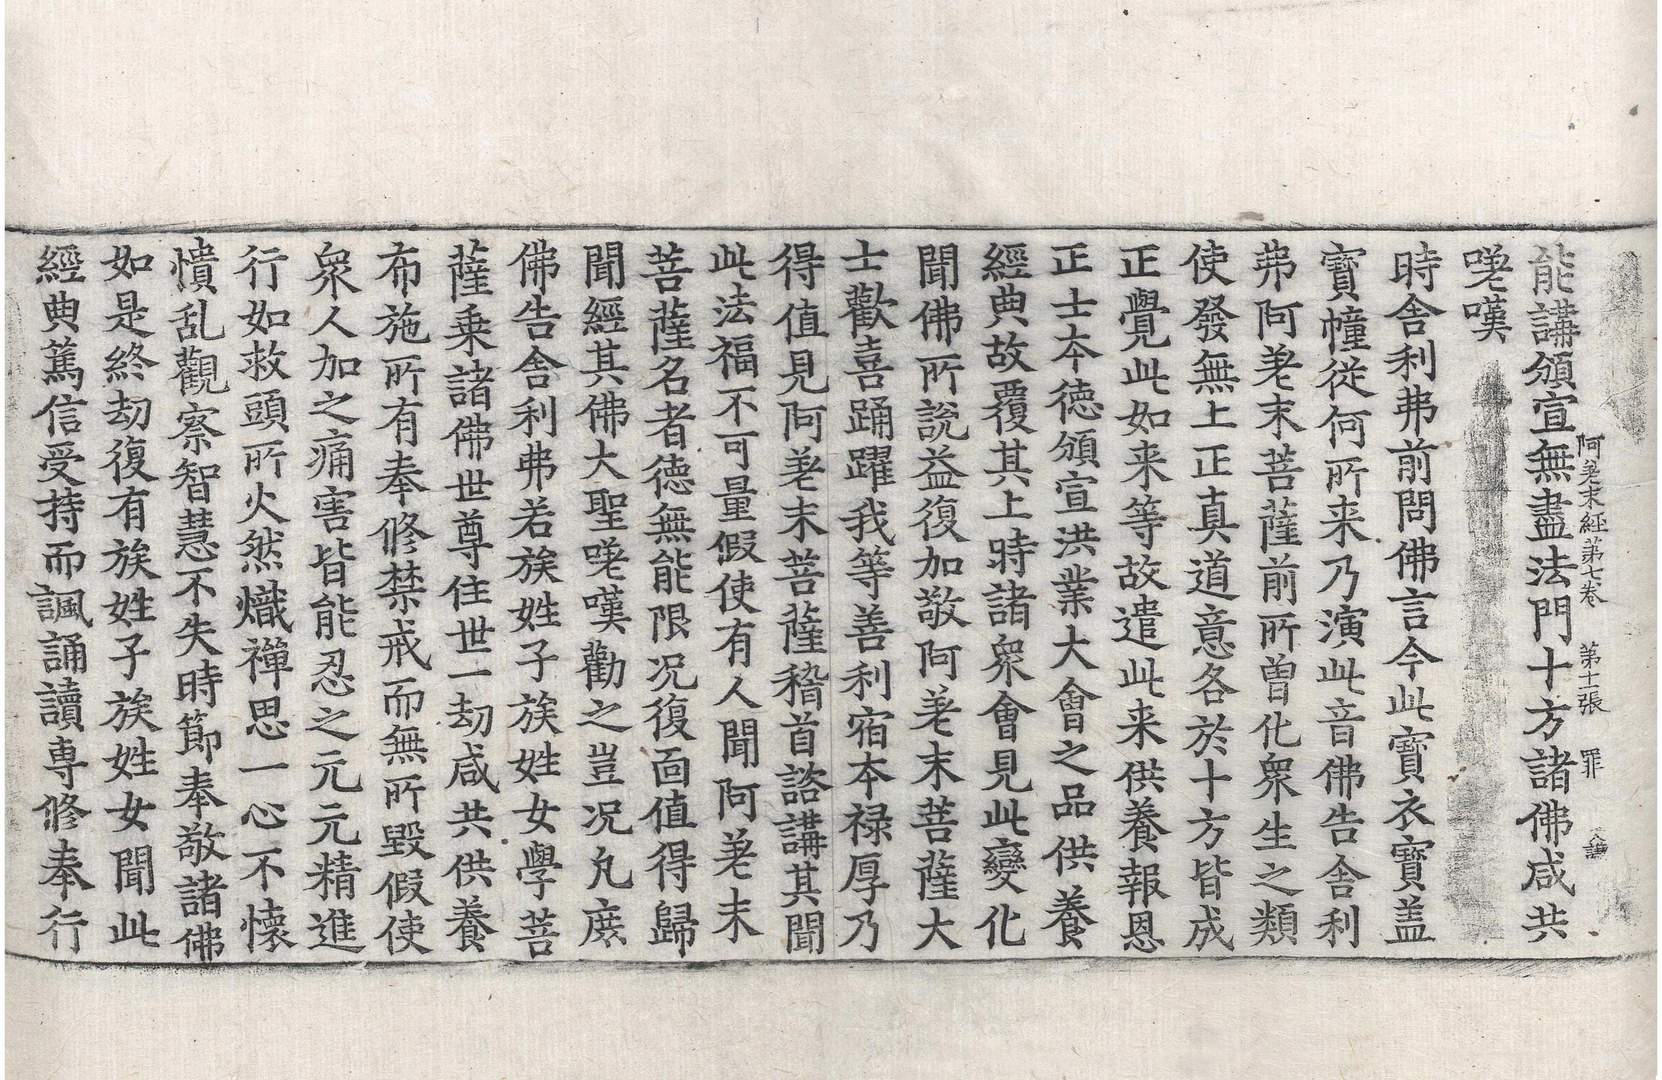 能講頒宣無盡法門十方諸佛咸共
嗟嘆
阿差末經第七卷 第十一張 罪
時舍利弗前問佛言今此寶衣寶盖
寶幢從何所来乃演此音佛告舍利
弗阿差末菩薩前所曽化衆生之類
使發無上正真道意各於十方皆成
正覺此如来等故遣此来供養報恩
正士夲徳頒宣洪業大會之品供養
經典故覆其上時諸衆會見此變化
聞佛所說益復加敬阿差末菩薩大
士歡喜踊躍我等善利宿本禄厚乃
得值見阿差末菩薩稽首諮講其聞
此法福不可量假使有人聞阿差末
菩薩名者德無能限况復面值得歸
聞經其佛大聖嗟嘆勸之豈况凢庶
佛告舍利弗若族姓子族姓女學菩
薩乗諸佛世尊住世一劫咸共供養
布施所有奉修禁戒而無所毀假使
衆人加之痛害皆能忍之元元精進
行如救頭所火然熾禪思一心不懷
憒乱觀察智慧不失時節奉敬諸佛
如是終劫復有族姓子族姓女聞此
經典篤信受持而諷誦讀専修奉行